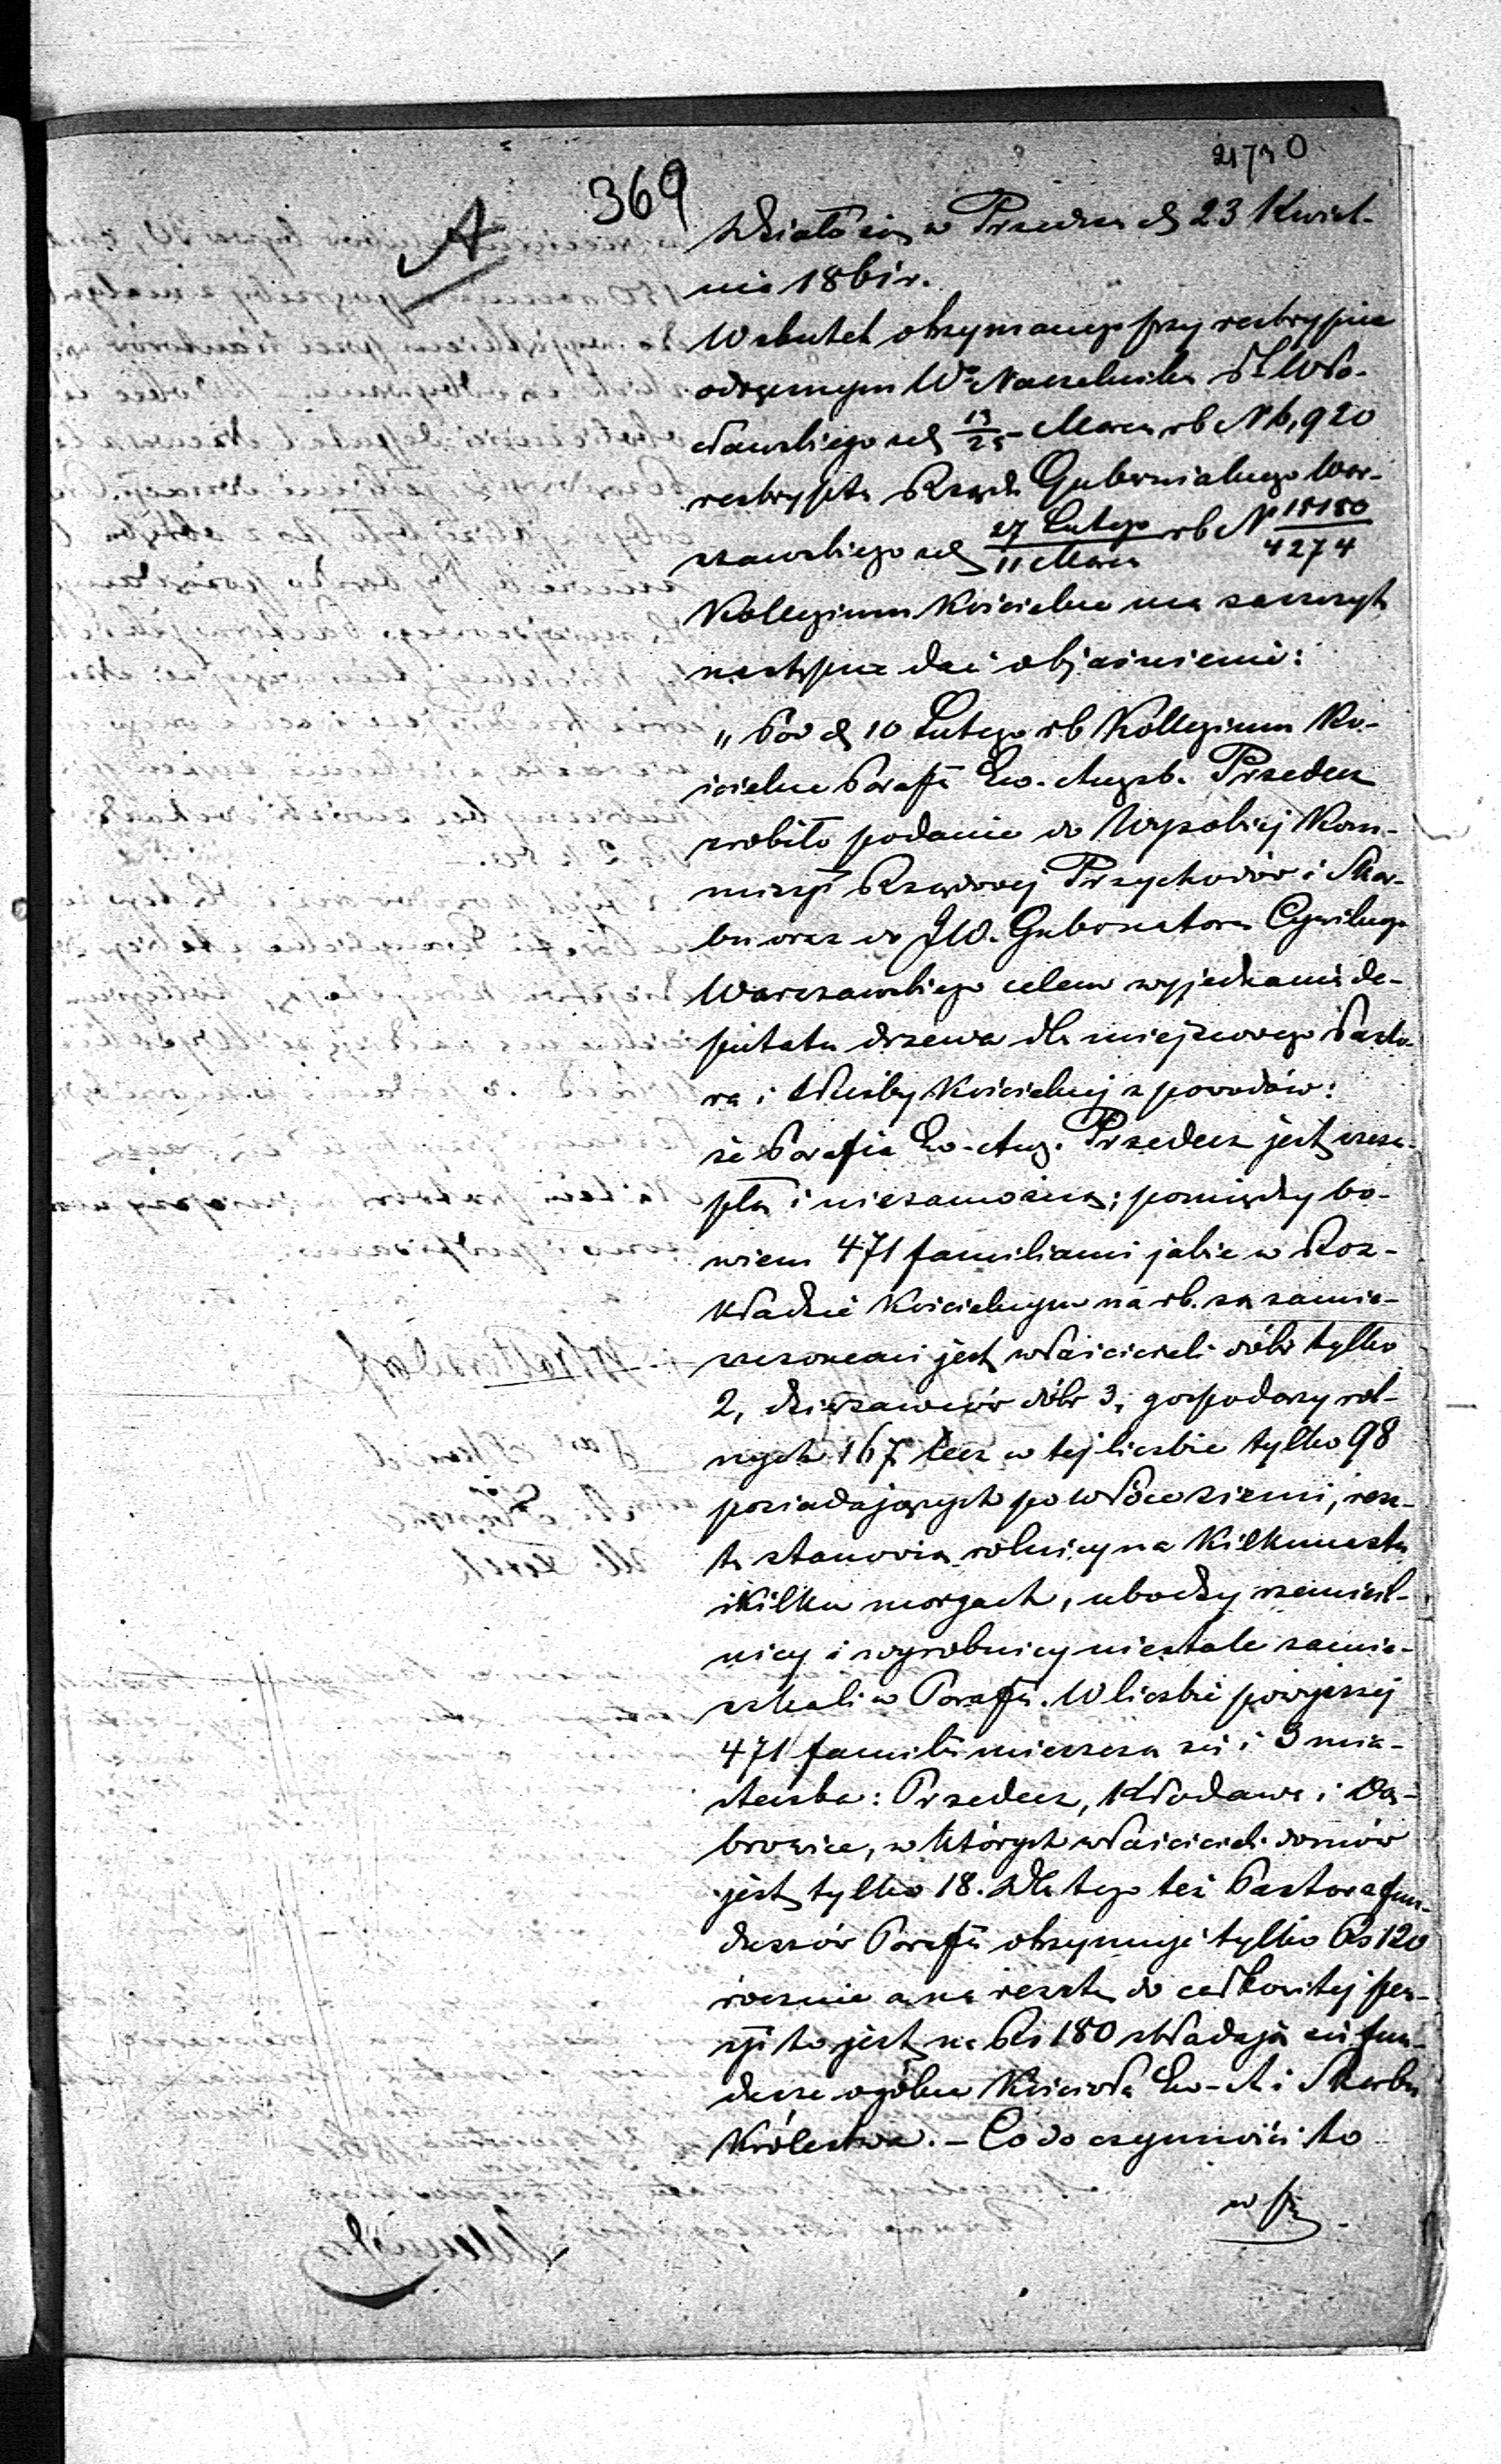 21730
369
A
Działo się w Przedczu d. 23 Kwiet-
nia 1861 r.
W skutek otrzymanego przy reskrypcie
odręcznym Wo Naczelnika Ptu Wło-
cławskiego z d. 13/25 Marca rb N 6,920
reskryptu Rządu Gubernialnego War-
szawskiego z d. 27 Lutego/11 Marca rb N 18180/4274
Kollegium Kościelne ma zaszczyt
następne dać objaśnienie:
„Pod d. 10 Lutego rb Kollegium Ko-
ścielne Parafii Ew. Augsb. Przedecz
zrobiło podanie do Wysokiej Kom-
missyi Rządowej Przychodów i Skar-
bu oraz do JW. Gubernatora Cywilnego
Warszawskiego celem wyjednania de-
putatu drzewa dla miejscowego Pasto-
ra i Służby Kościelnej z powodów:
że Parafia Ew-Aug. Przedecz jest szczu-
pła i niezamożna; pomiędzy bo-
wiem 471 familiami jakie w Roz-
kładzie Kościelnym na rb. są zamie-
szczonemi jest właścicieli dóbr tylko
2, dzierżawców dóbr 3, gospodarzy rol-
nych 167 lecz w tej liczbie tylko 98
posiadających po włóce ziemi, resz-
tę stanowią rolnicy na kilkunastu
i kilku morgach, ubodzy rzemieśl-
nicy i wyrobnicy niestale zamie-
szkali w Parafii. W liczbie powyższej
471 familii mieszczą się i 3 mia-
steczka: Przedecz, Kłodawa i Dą-
browice, w których właścicieli domów
jest tylko 18. Dla tego też Pastor z fun-
duszów Parafii otrzymuje tylko Rs 120
rocznie a na resztę do całkowitej pen-
syi to jest na Rs 180 składają się fun-
dusze ogólne Kościoła Ew-A i Skarbu
Królestwa. – Co do czynności to